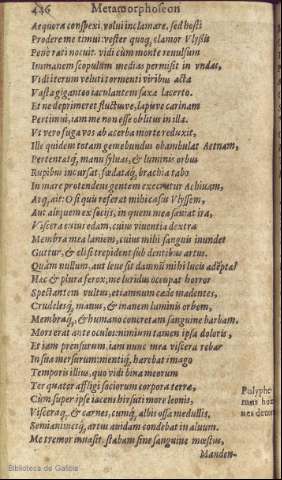 446 Metamorphoseon
Aequora conspexi. volui inclamare, sed hosti
Prodere me timui: vester quoq, clamor Vlyssi
Pene rati nocuit. vidi cùm monte reuulsum
Immanem scopulum medias permisit in vndas,
Vidi iterum veluti tormenti viribus acta
Vasta giganteo iaculantem saxa lacerto.
Et ne deprimeret fluctusve, lapisve carinam
Pertimui, iam me non esse oblitus in illa.
Vt verò fuga vos ab acerba morte reduxit,
Ille quidem totam gemebundus obambulat Aetnam,
Pertentatq, manu syluas, & luminis orbus
Rupibus incursat, foedataq, brachia tabo
In mare protendens gentem execratur Achiuam,
Atq, ait: O si quis referat mihi casus Vlyssem,
Aut aliquem ex socijs, in quem mea saeuiat ira,
Viscera cuius edam, cuius viuentia dextra
Membra mea laniem, cuius mihi sanguis inundet
Guttur, & elisi trepident sub dentibus artus.
Quàm nullum, aut leue sit damnū mihi lucis adēptae?
Haec & plura ferox, me luridus occupat horror
Spectantem vultus, etiamnum caede madentes,
Crudelesq, manus, & inanem luminis orbem,
Membraq, & humano concretam sanguine barbam.
Mors erat ante oculos: minimum tamen ipsa doloris,
Et iam prensurum, iam nunc mea viscera rebar
In sua mersurum: mentiq, haerebat imago
Temporis illius, quo vidi bina meorum
Ter quater affligi sociorum corpora terra,
Cùm super ipse iacens hirsuti more leonis,
Visceraq, & carnes, cumq, albis ossa medullis,
Semianimesq, artus auidam condebat in aluum.
Me tremor inuasit. stabam sine sanguine moestus,
Manden-
Polyphe-
mus ho
nes deuo
Biblioteca de Galicia